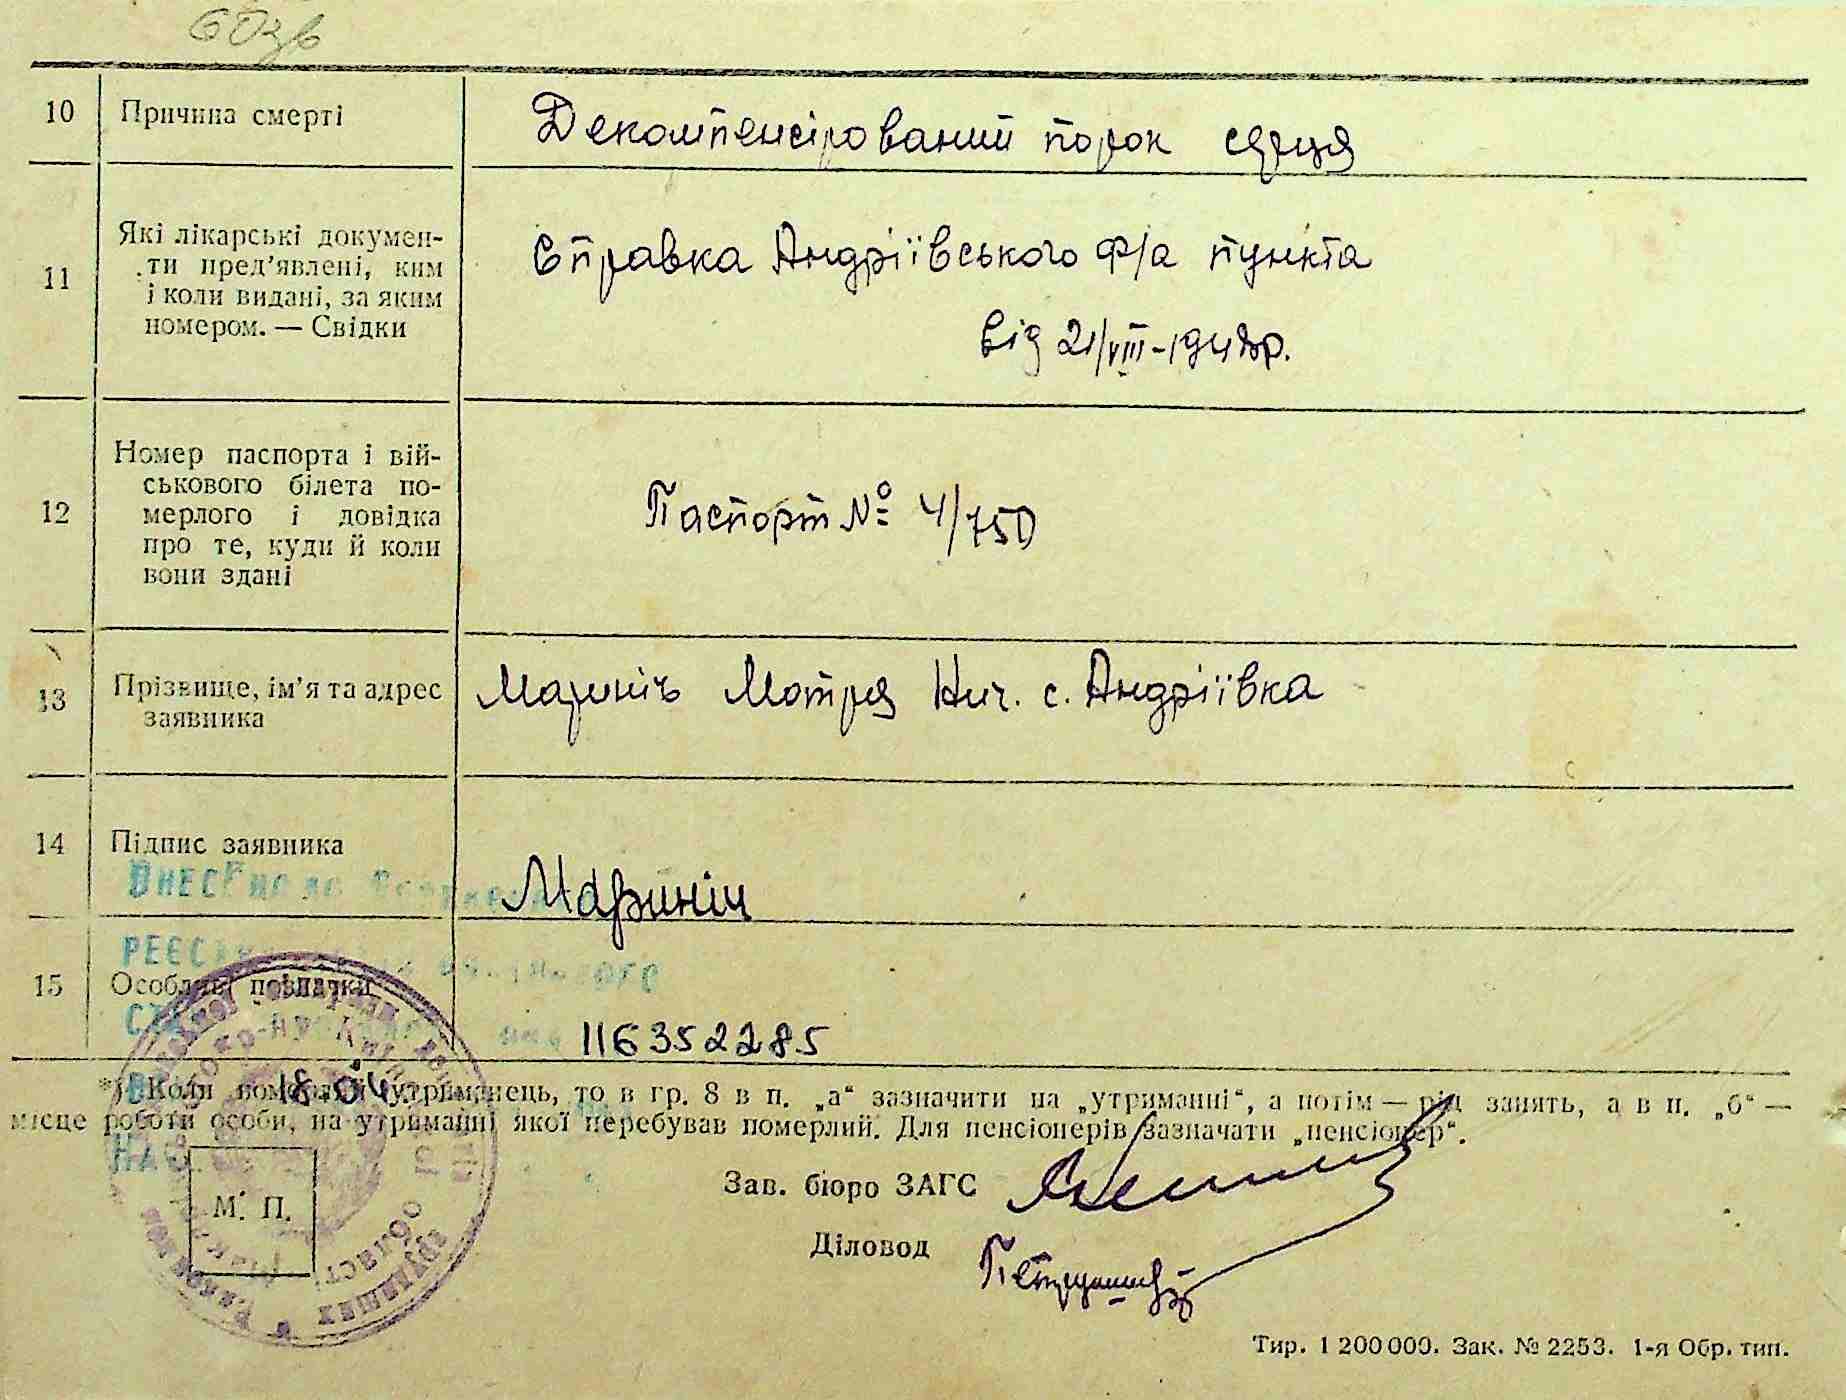 10 Причина смерті Декомпенсірований порок серця
11 Які лікарські докумен-
ти пред'явлені, ким
і коли видані, за яким
номером. — Свідки
Справка Андріївського ф/а пункта
від 21/VIII-1948р.
12 Номер паспорта і вій-
ськового білета по-
мерлого і довідка
про те, куди й коли
вони здані
Паспорт № 4/750
13 Прізвище, ім'я та адрес
заявника
Маринич Мотря Нич. с. Андріївка
14 Підпис заявника
Маринич
15 Особливі позначки
116352285
*) Коли померлий утриманець, то в гр. 8 в п. „а“ зазначити на „утриманні“, а потім — рід занять, а в п. „б“ —
місце роботи особи, на утриманні якої перебував померлий. Для пенсіонерів зазначати „пенсіонер“.
Зав. бюро ЗАГС
М. П.
Діловод
Тир. 1 200 000. Зак. № 2253. 1-я Обр. тип.